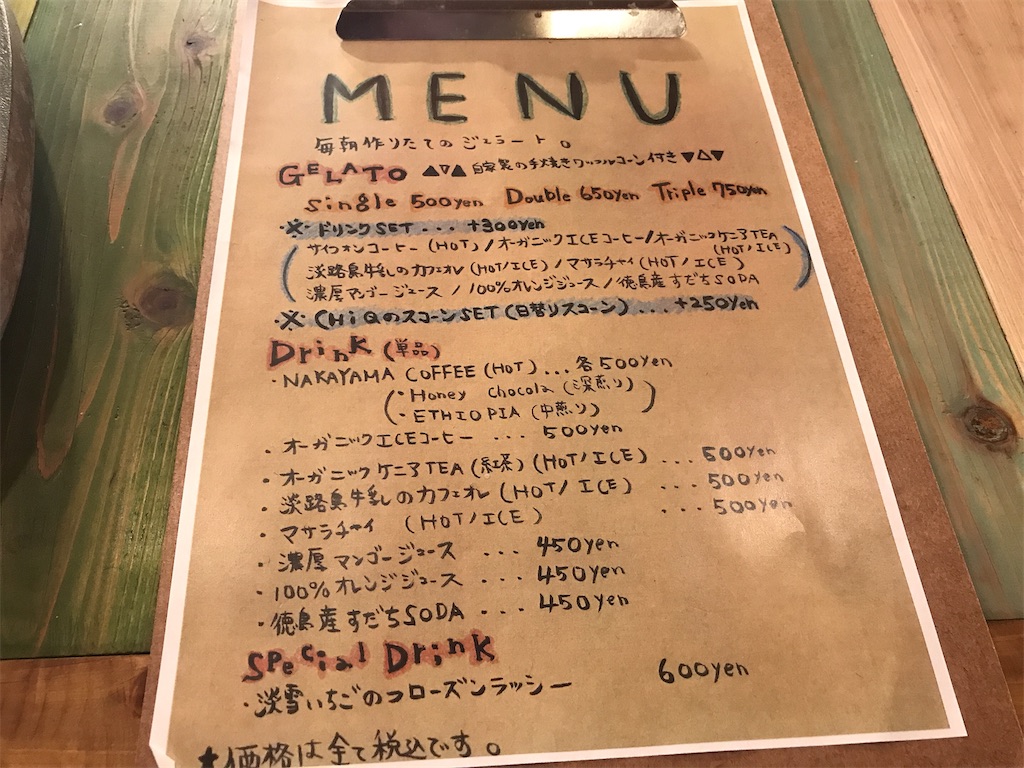 MENU
毎朝作りたてのジェラート。
GELATO ▲▽▲ 自家製の手焼きワッフルコーン付き ▼△▼
single 500yen Double 650yen Triple 750yen
※ ドリンクSET... +300yen
(サイフォンコーヒー(HOT)/オーガニックICEコーヒー/オーガニックケニアTEA
(HOT/ICE)
淡路島牛乳のカフェオレ(HOT/ICE)/マサラチャイ(HOT/ICE)
濃厚マンゴージュース/100%オレンジジュース/徳島産すだちSODA)
※ CHiQのスコーンSET(日替りスコーン)...+250yen
Drink (単品)
・NAKAYAMA COFFEE (HOT)...各500yen
(・Honey Chocola (深煎り)
・ETHIOPIA (中煎り))
・オーガニックICEコーヒー ... 500yen
・オーガニックケニアTEA(紅茶)(HOT/ICE) ...500yen
・淡路島牛乳のカフェオレ(HOT/ICE) ...500yen
・マサラチャイ (HOT/ICE) ...500yen
・濃厚マンゴージュース ...450yen
・100%オレンジジュース ...450yen
・徳島産すだちSODA ...450yen
Special Drink
・淡雪いちごのフローズンラッシー 600yen
★価格は全て税込です。